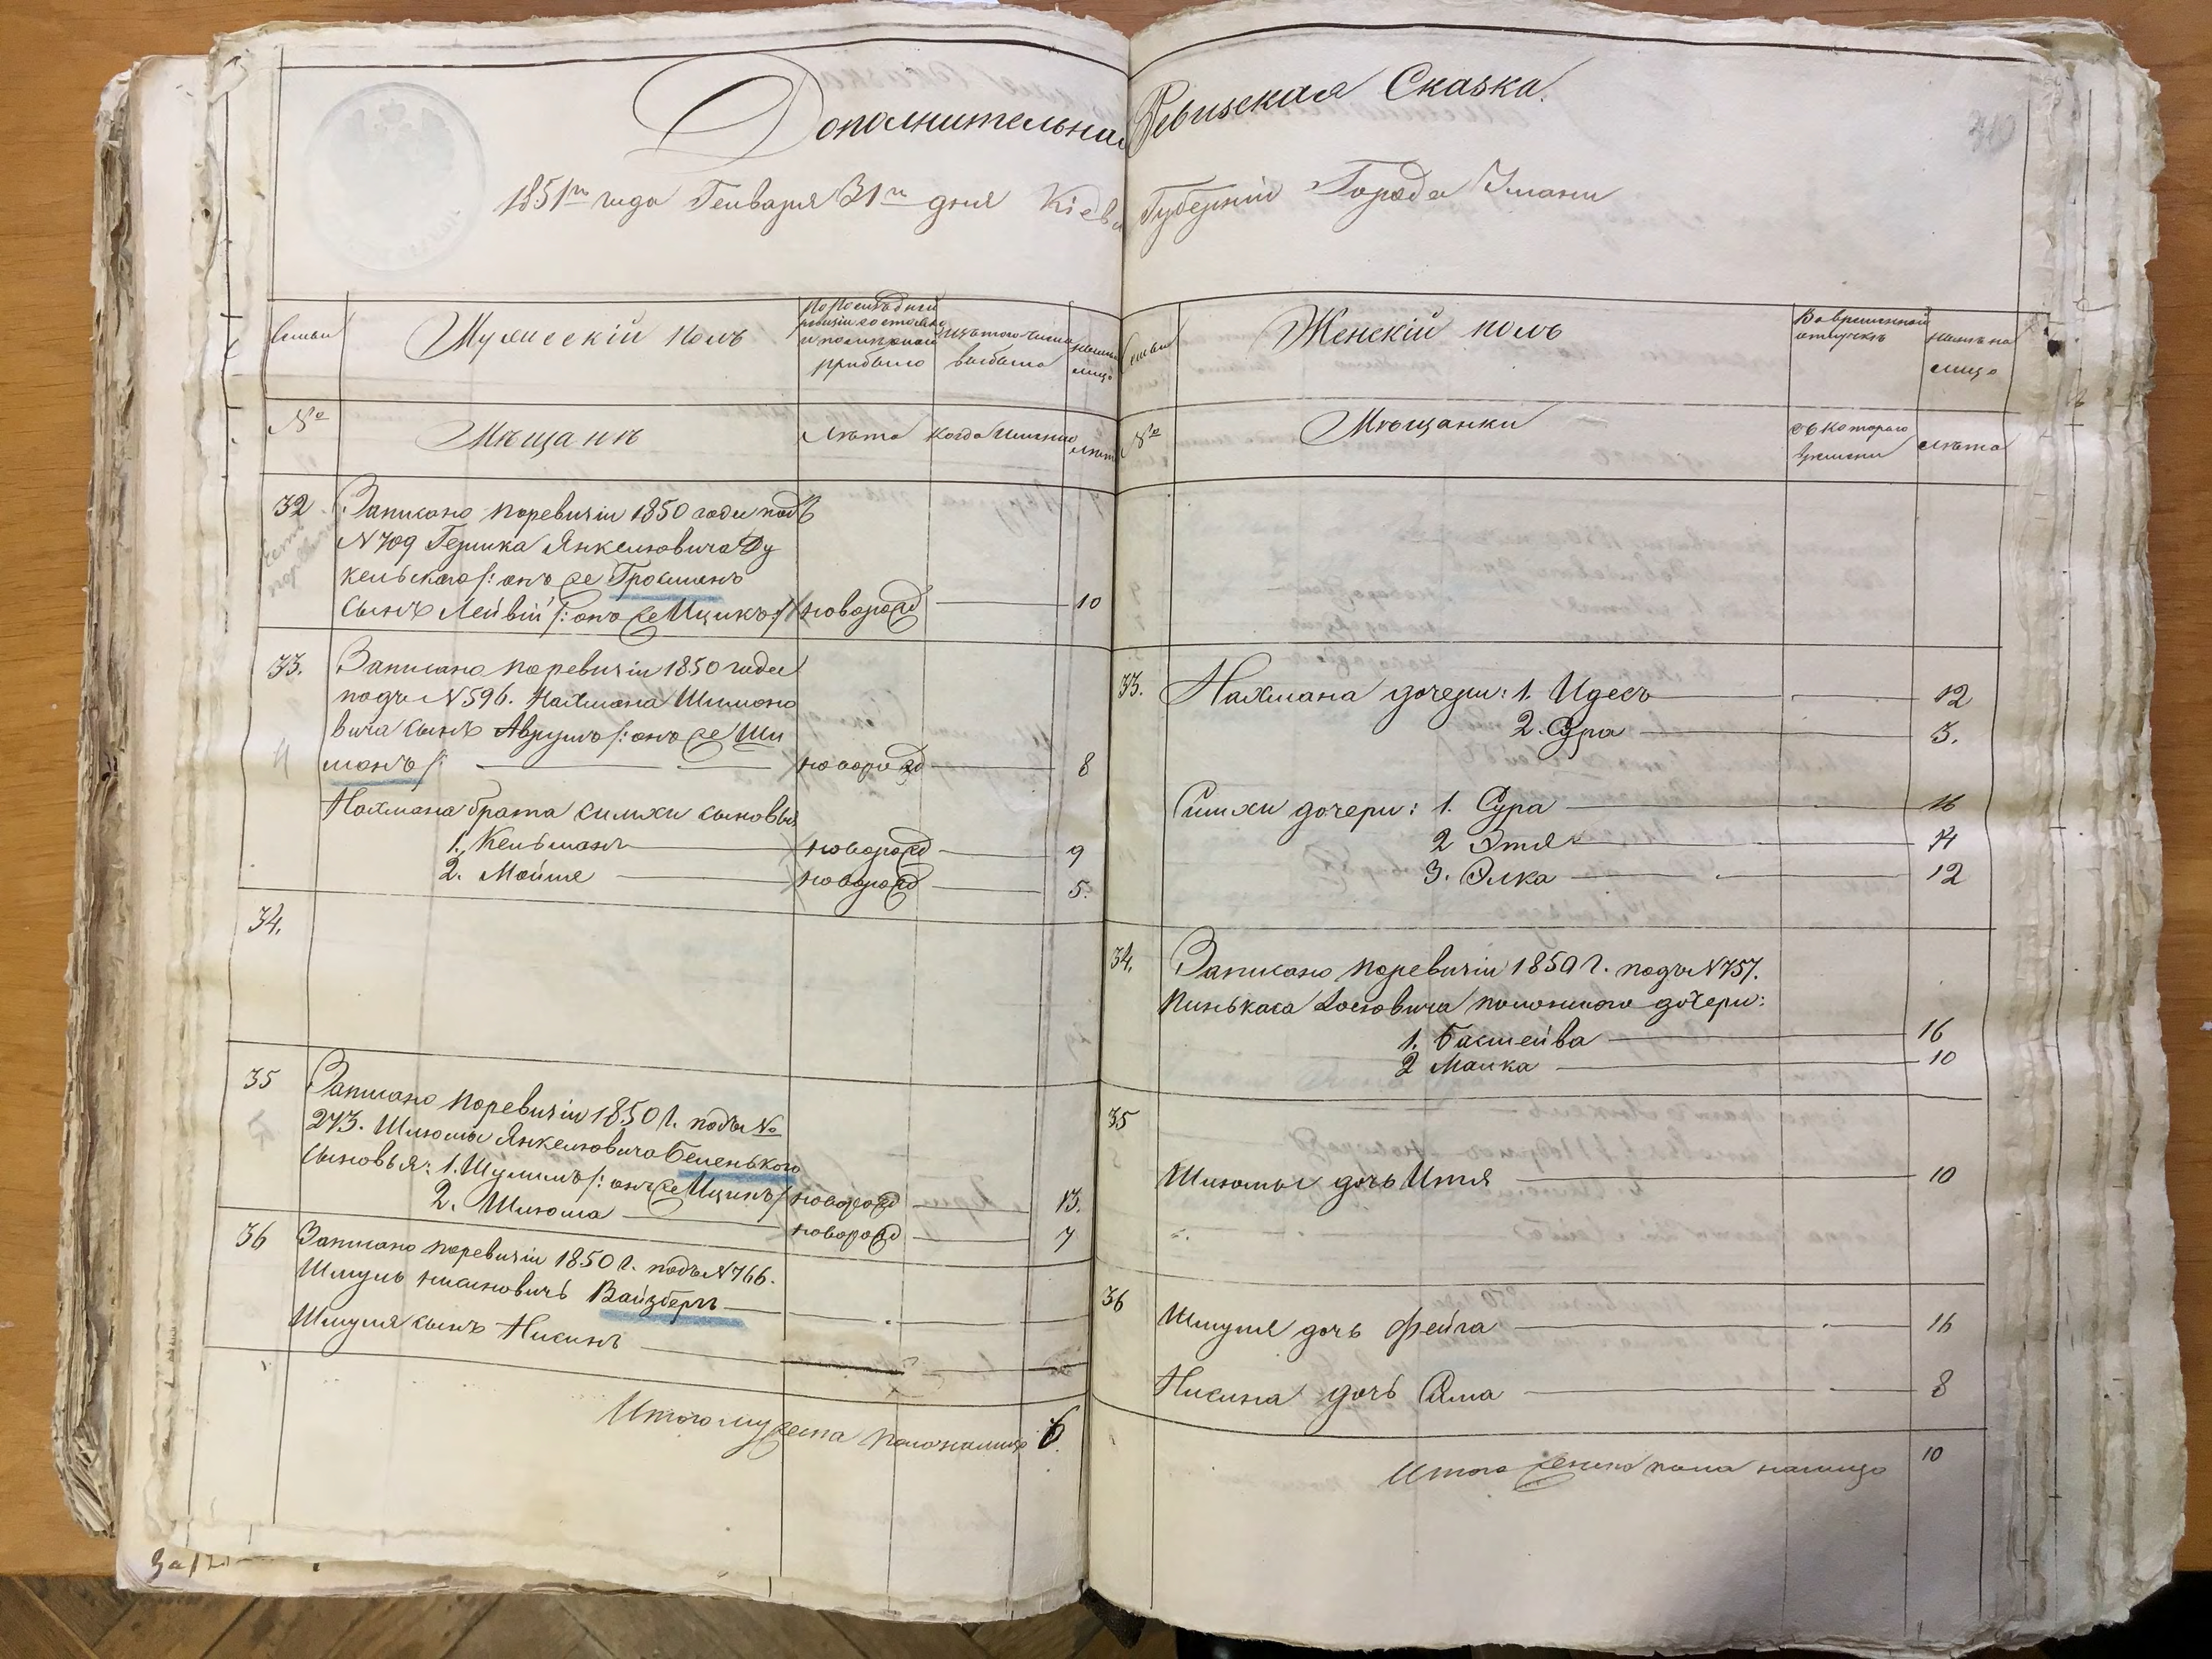 Дополнительная Ревизская Сказка.
1851го года Генваря 31го дня Кіевс Губерніи Города Умани
310
Семьи
Мужескій полъ
По последней ревизіи состояло и после оной прибыло
Изъ того числа выбыло
Ныне на лицо
№
Мещанъ
Лета
Когда Именно
Лета
32
Записано поревизіи 1850 года подъ
№709 Гершка Янкелевича Ду
кельского /: онъ же Гросманъ
Сынъ Лейвій /: онъ же Ицикъ :/ новорожд 10
33.
Записано поревизіи 1850 года
подъ №596. Нахмана Шимоно
вича сынъ Аврумъ /: онъ же Ши
монъ /: новорожд 8
Нахмана брата Симхи сыновья
1. Кельманъ новорожд 9
2. Мойше новорожд 5.
34.
35
Записано поревизіи 1850 г. подъ №
273. Шліомы Янкелевича Беленького
Сыновья: 1. Шулимъ /: онъ же Ицикъ / новорожд 13.
2. Шліома новорожд 7
36
Записано поревизіи 1850 г. подъ №766.
Шмуль Нисиновичъ Вайзберъ
Шмуля сынъ Нисинъ
Итого мужеска пола налицо 6.
Семьи
Женскій полъ
Во временной отлучке
Ныне на лицо
№
Мещанки
Съ котораго времени
Лета
33.
Нахмана дочери: 1. Идесъ 12
2. Сура 3.
Симхи дочери: 1. Сура 16
2 Этля 14
3. Элка 12
34.
Записано поревизіи 1850 г. подъ №757.
Пинькаса дочери:
1. Басшейва 16
2 Малка 10
35
Шліомы дочь Итя 10
36
Шмуля дочь Фейга 16
Нисина дочь Сима 8
Итого женска пола налицо 10